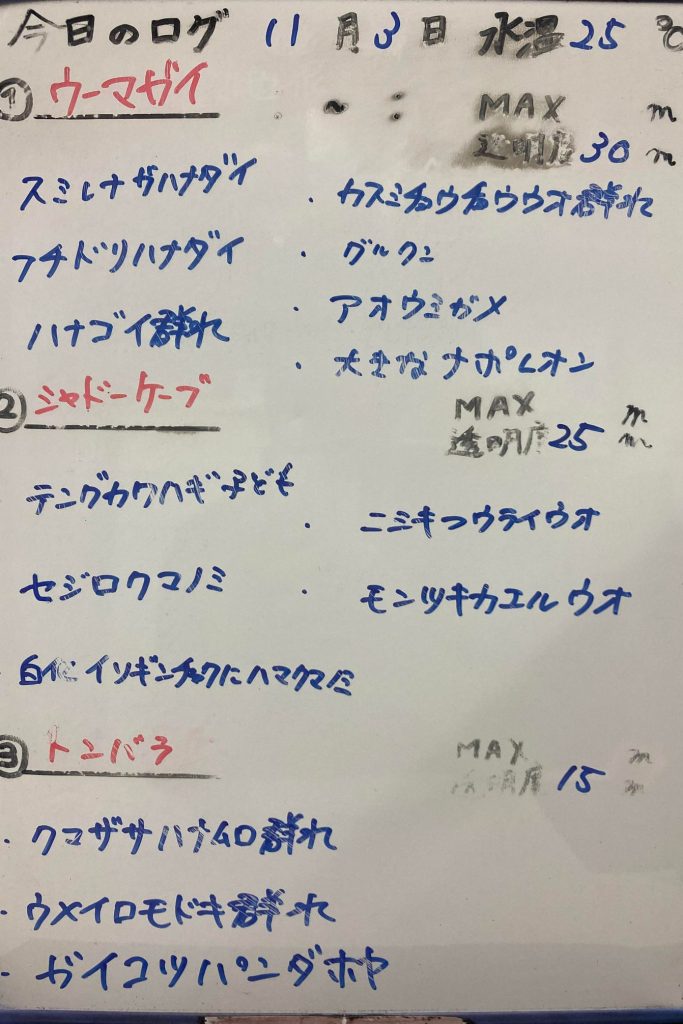 今日のログ 11月3日 水温25℃
① ウーマガイ ~ : MAX m
透明度30m
スミレナガハナダイ ・カスミチョウチョウウオ群れ
フチドリハナダイ ・グルクン
ハナゴイ群れ ・アオウミガメ
・大きなナポレオン
② シャドーケーブ MAX m
透明度25m
テングカワハギ子ども ・ニシキフウライウオ
セジロクマノミ ・モンツキカエルウオ
白化イソギンチャクにハマクマノミ
③ トンバラ MAX m
透明度15m
・クマザサハナムロ群れ
・ウメイロモドキ群れ
・ガイコツパンダホヤ